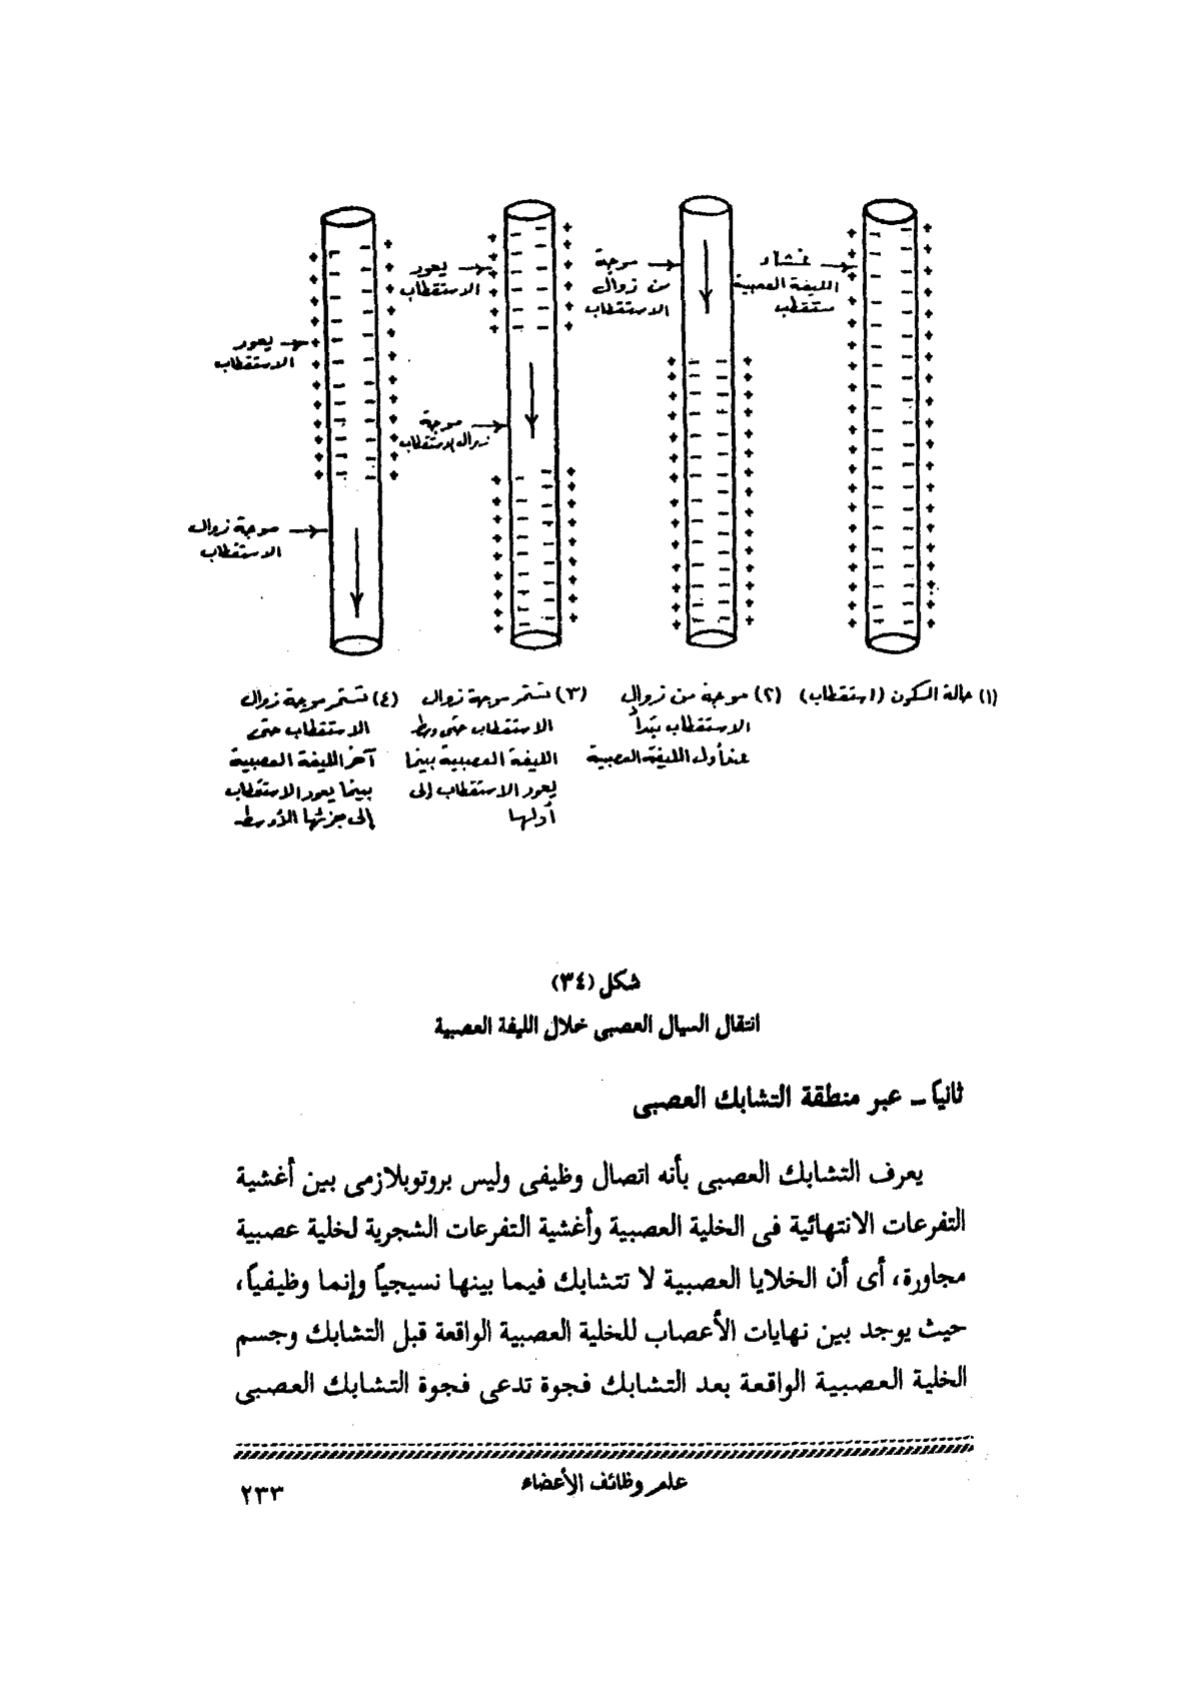 غشاء
الليفة العصبية
مستقطب
موجة
من زوال
الاستقطاب
يعود
الاستقطاب
موجة
زوال الاستقطاب
يعود
الاستقطاب
موجة زوال
الاستقطاب
(١) حالة السكون (استقطاب)
(٢) موجة من زوال
الاستقطاب تبدأ
عند أول الليفة العصبية
(٣) تستمر موجة زوال
الاستقطاب حتى وسط
الليفة العصبية بينما
يعود الاستقطاب إلى
أولها
(٤) تستمر موجة زوال
الاستقطاب حتى
آخر الليفة العصبية
بينما يعود الاستقطاب
إلى جزئها الأوسط
شكل (٣٤)
انتقال السيال العصبى خلال الليفة العصبية
ثانياً ــ عبر منطقة التشابك العصبى
يعرف التشابك العصبى بأنه اتصال وظيفى وليس بروتوبلازمى بين أغشية
التفرعات الانتهائية فى الخلية العصبية وأغشية التفرعات الشجرية لخلية عصبية
مجاورة، أى أن الخلايا العصبية لا تتشابك فيما بينها نسيجياً وإنما وظيفياً،
حيث يوجد بين نهايات الأعصاب للخلية العصبية الواقعة قبل التشابك وجسم
الخلية العصبية الواقعة بعد التشابك فجوة تدعى فجوة التشابك العصبى
علم وظائف الأعضاء
٢٣٣